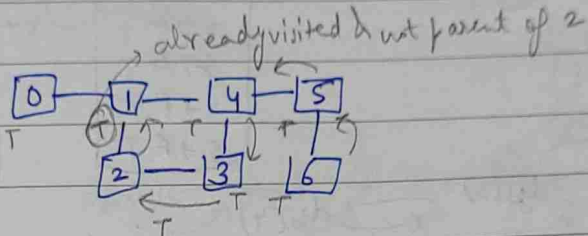 already visited & not parent of 2
0 1 4 5
T T T T
2 3 6
T T T